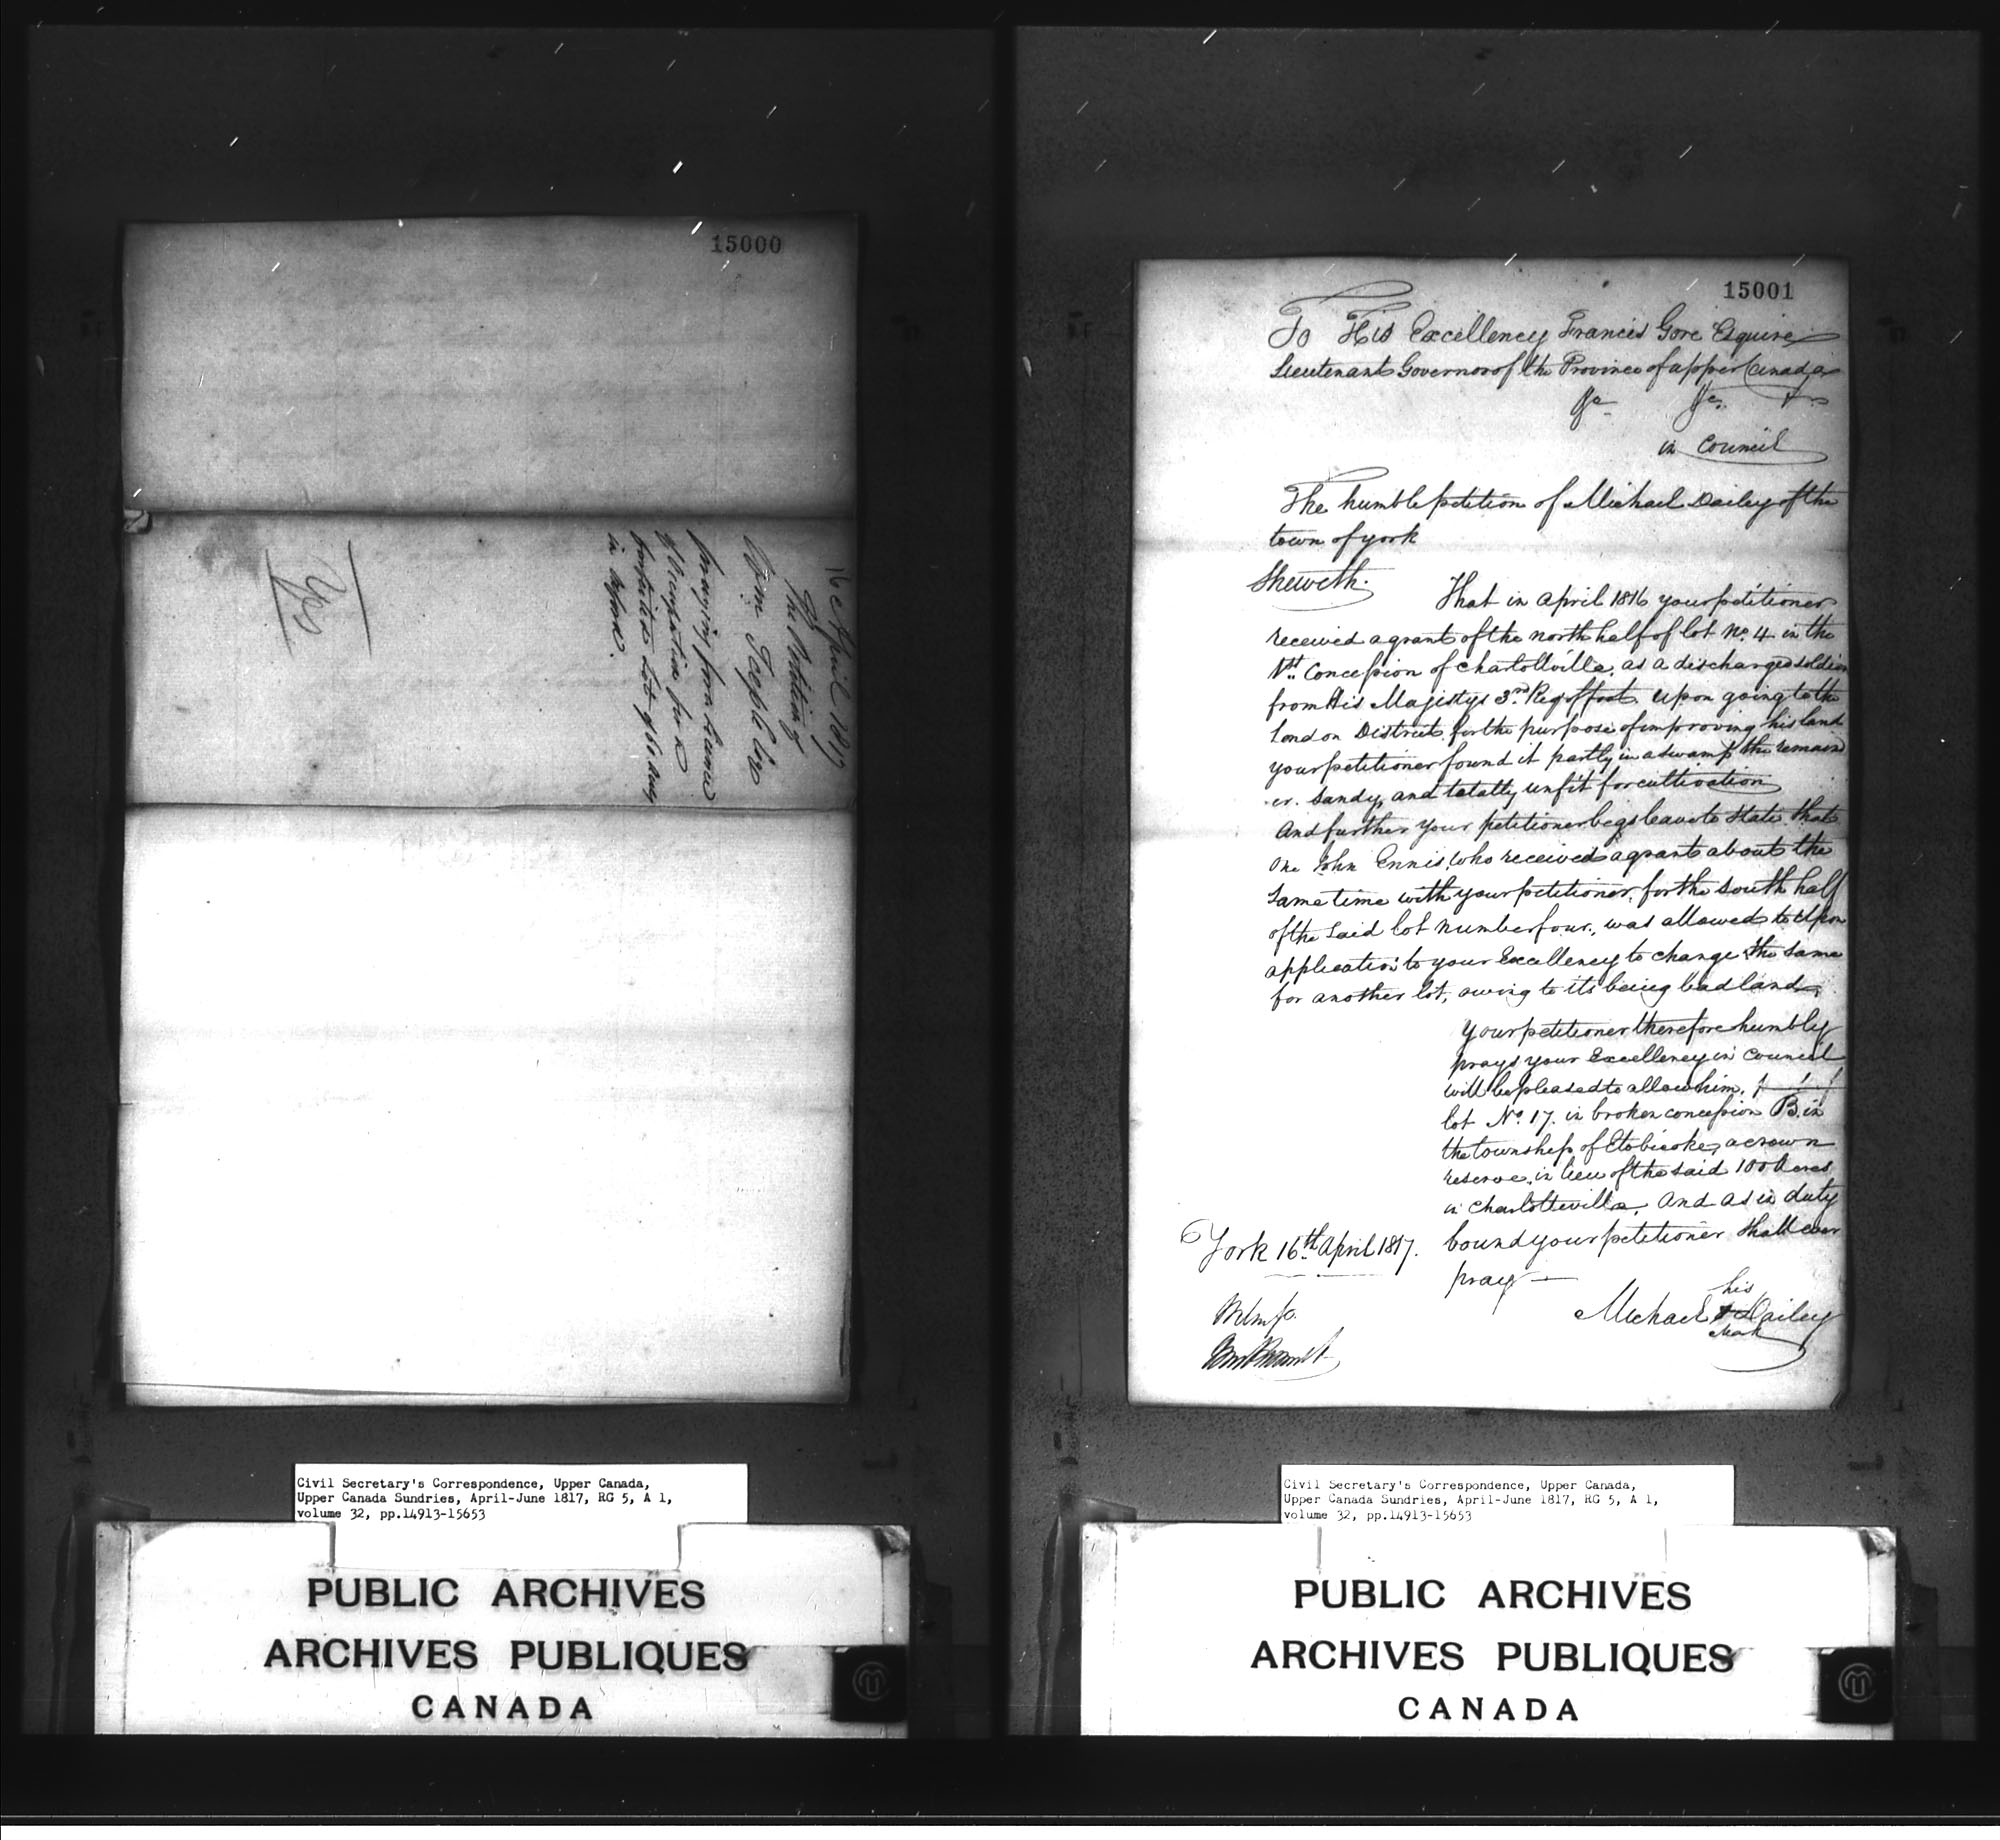 15000
16 April 1817
The Petition of
Wm
praying for a licence
of Occupation for a
Lot No
in
Yes
Civil Secretary's Correspondence, Upper Canada,
Upper Canada Sundries, April-June 1817, RG 5, A 1,
volume 32, pp.14913-15653
PUBLIC ARCHIVES
ARCHIVES PUBLIQUES
CANADA
15001
To His Excellency Francis Gore Esquire
Lieutenant Governor of the Province of upper Canada
&c &c &c
in Council
The humble petition of Michael Dailey of the
town of york
Sheweth.
That in april 1816 your petitioner
received a grant of the north half of lot No. 4 in the
1st. Concession of charlottville, as a discharged soldier
from His Majestys 3rd. Reg. of foot. Upon going to the
London District, for the purpose of improving his land
your petitioner found it partly in a swamp, the remaind
er. sandy, and totally unfit for cultivation
And further your petitioner begs leave to state that
one John Ennis, who received a grant about the
same time with your petitioner, for the south half
of the said lot number four, was allowed to upon
application to your Excellency to change the same
for another lot, owing to its being bad land.
Your petitioner therefore humbly
prays your Excellency in Council
will be pleased to allow him,
lot No. 17. in broken concession B. in
the township of Etobicoke, a crown
reserve, in lieu of the said 100 Acres
in Charlotteville. And as in duty
bound your petitioner shall ever
pray —
York 16th April 1817.
his
Michael + Dailey
mark
Civil Secretary's Correspondence, Upper Canada,
Upper Canada Sundries, April-June 1817, RG 5, A 1,
volume 32, pp.14913-15653
PUBLIC ARCHIVES
ARCHIVES PUBLIQUES
CANADA